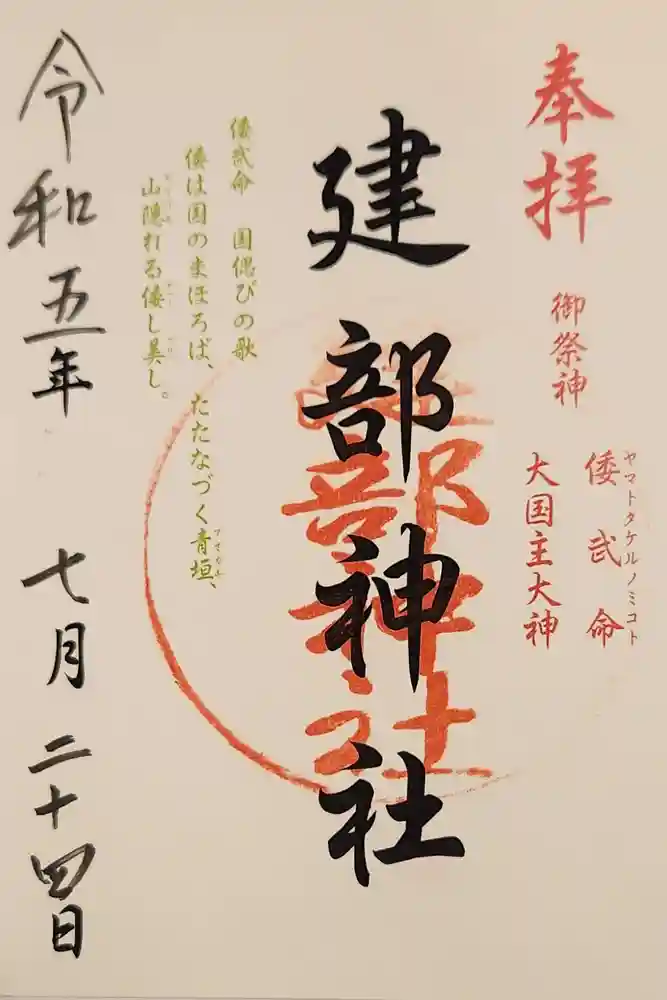 奉拝
御祭神
倭武命
ヤマトタケルノミコト
大国主大神
建部神社
建部神社
倭武命 国偲びの歌
倭は国のまほろば、たたなづく青垣、
山隠れる倭し美し。
令和五年 七月二十四日